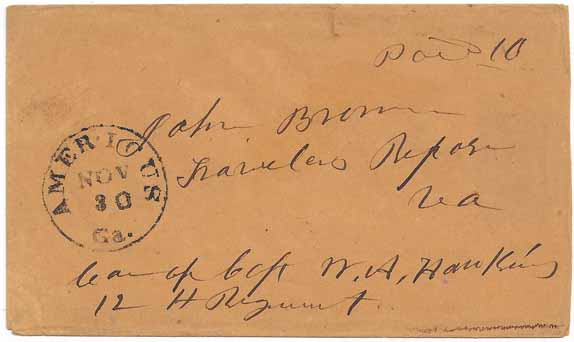 Paid 10
John Brown
Travelers Repose
Va
AMERICUS
NOV
30
Ga.
Care of Capt W. A. Hawkins
12 th Regiment